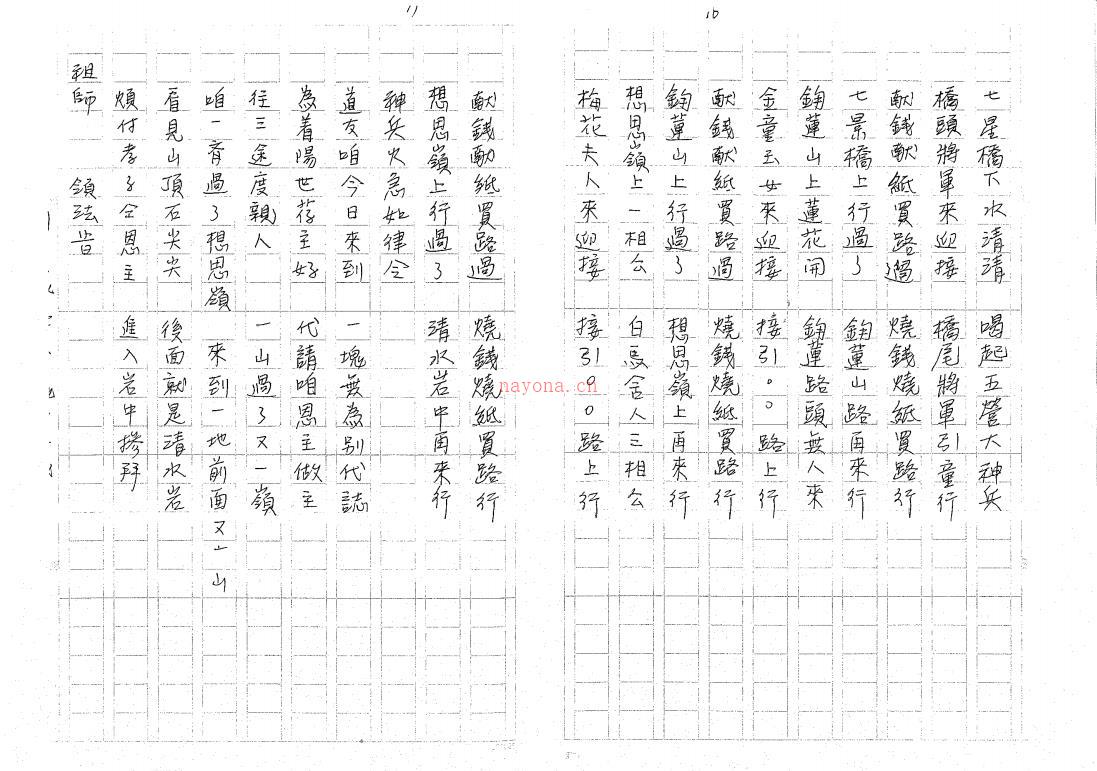 16
七星橋下水清清 喝起五營大神兵
橋頭將軍來迎接 橋尾將軍引童行
献錢献紙買路過 燒錢燒紙買路行
七景橋上行過了 鉤蓮山路再來行
鉤蓮山上蓮花開 鉤蓮路頭無人來
金童玉女來迎接 接引○○路上行
献錢献紙買路過 燒錢燒紙買路行
鉤蓮山上行過了 想思嶺上再來行
想思嶺上一相公 白馬舍人三相公
梅花夫人來迎接 接引○○路上行
17
献錢献紙買路過 燒錢燒紙買路行
想思嶺上行過了 清水岩中再來行
神兵火急如律令
道友咱今日來到 一塊無為別代誌
為着陽世葆主好 代請咱恩主做主
往三途度親人 一山過了又一嶺
咱一齊過了想思嶺 來到一地前面又一山
看見山頂石尖尖 後面就是清水岩
煩付孝子仝恩主 進入岩中摻拜
祖師 領法旨
nayona.cn